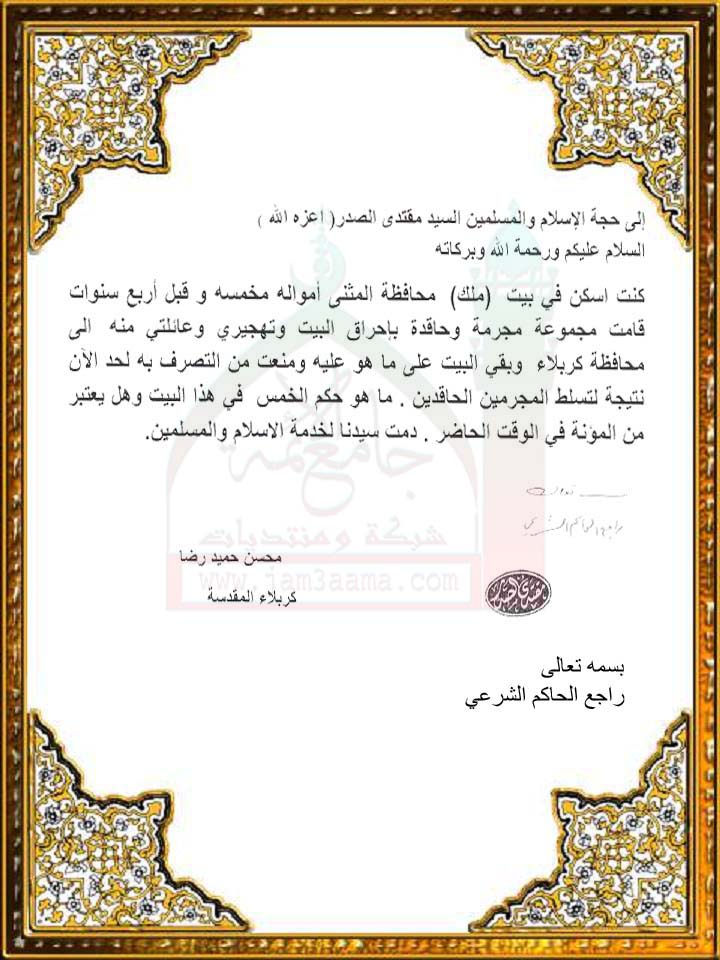 إلى حجة الإسلام والمسلمين السيد مقتدى الصدر( اعزه الله )
السلام عليكم ورحمة الله وبركاته
كنت اسكن في بيت (ملك) محافظة المثنى أمواله مخمسه و قبل أربع سنوات
قامت مجموعة مجرمة وحاقدة بإحراق البيت وتهجيري وعائلتي منه الى
محافظة كربلاء وبقي البيت على ما هو عليه ومنعت من التصرف به لحد الآن
نتيجة لتسلط المجرمين الحاقدين . ما هو حكم الخمس في هذا البيت وهل يعتبر
من المؤنة في الوقت الحاضر . دمت سيدنا لخدمة الاسلام والمسلمين.
جامع الأئمة
شبكة ومنتديات
www.jam3aama.com
بسمه تعالى
راجع الحاكم الشرعي
محسن حميد رضا
كربلاء المقدسة
مقتدى الصدر
بسمه تعالى
راجع الحاكم الشرعي